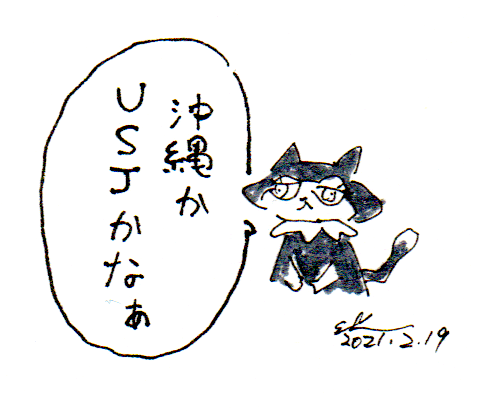 沖縄か
USJかなぁ
2021.2.19